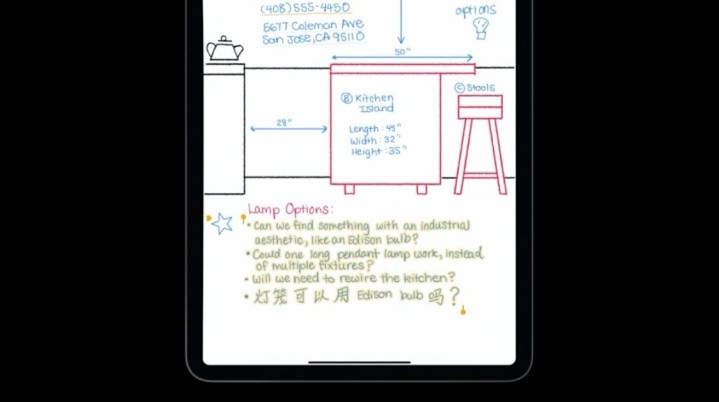 (408) 555-4450
5677 Coleman Ave
San Jose, CA 95110
options
50"
28"
Ⓑ Kitchen
Island
Length: 45"
Width: 32"
Height: 35"
Ⓒ Stools
Lamp Options:
• Can we find something with an industrial
aesthetic, like an Edison bulb?
• Could one long pendant lamp work, instead
of multiple fixtures?
• Will we need to rewire the kitchen?
• 灯笼可以用 Edison bulb 吗?